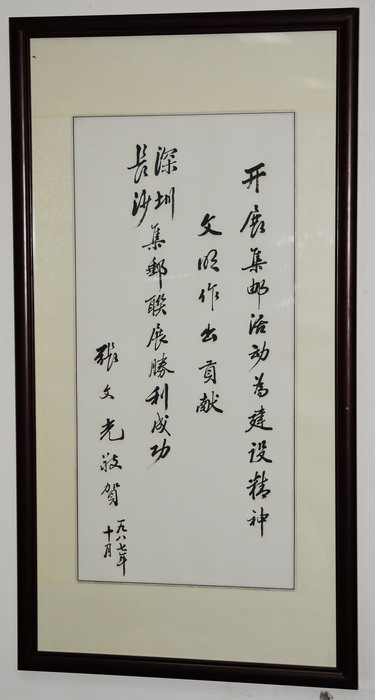 开展集邮活动为建设精神
文明作出贡献
深圳
長沙
集郵聯展勝利成功
張文光敬贺
一九八七年
十月